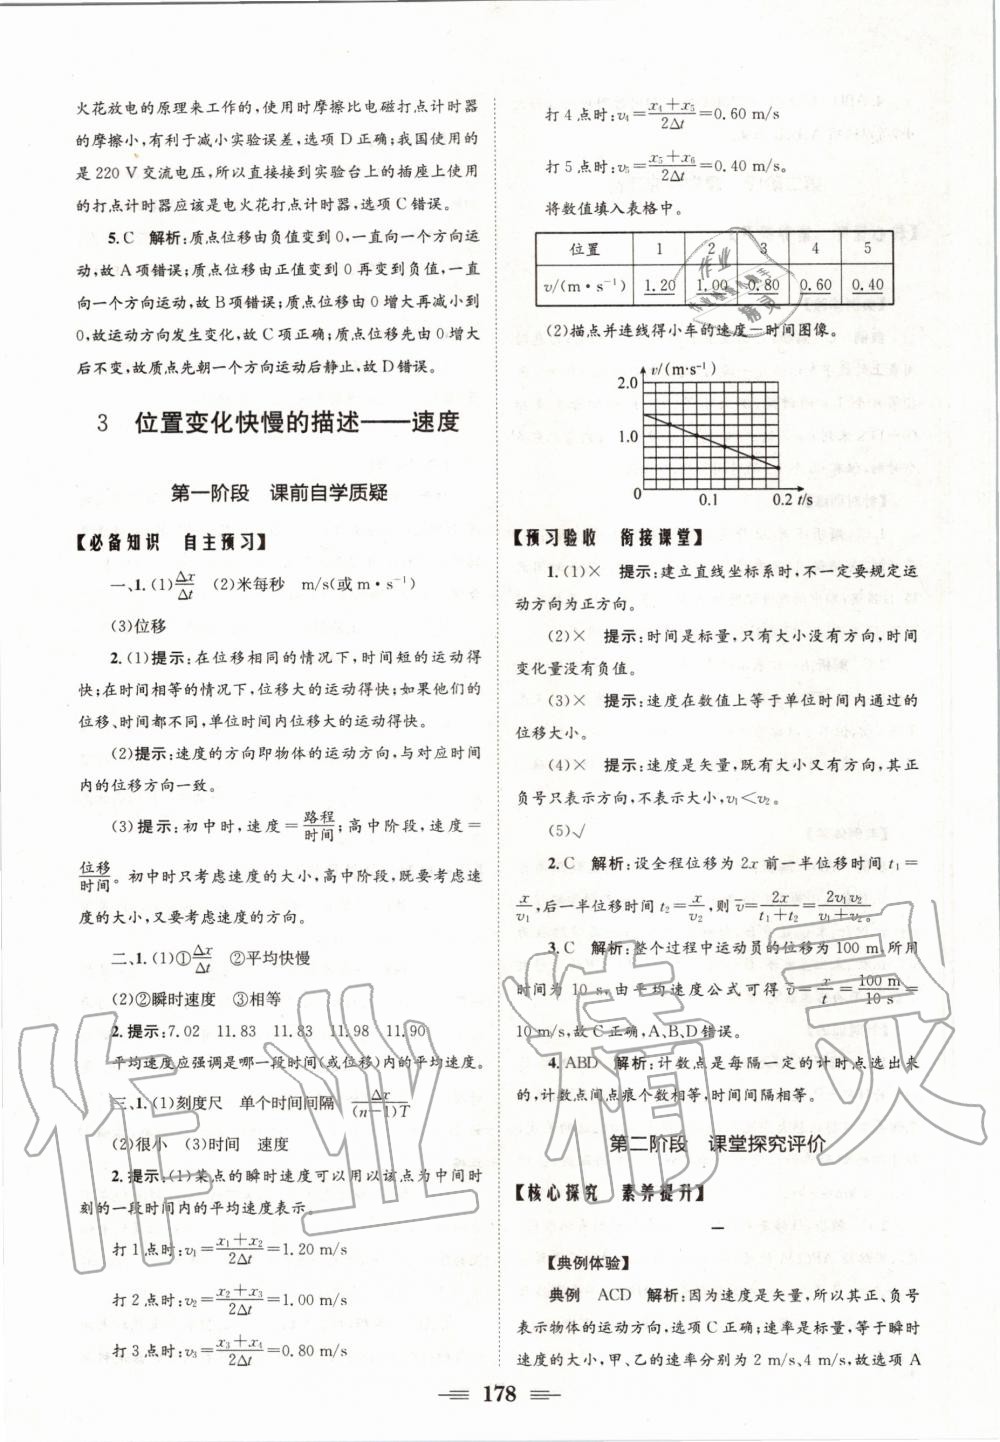 火花放电的原理来工作的,使用时摩擦比电磁打点计时器
的摩擦小,有利于减小实验误差,选项D正确;我国使用的
是220 V交流电压,所以直接接到实验台上的插座上使用
的打点计时器应该是电火花打点计时器,选项C错误。
5.C 解析:质点位移由负值变到0,一直向一个方向运
动,故A项错误;质点位移由正值变到0再变到负值,一直
向一个方向运动,故B项错误;质点位移由0增大再减小到
0,故运动方向发生变化,故C项正确;质点位移先由0增大
后不变,故质点先朝一个方向运动后静止,故D错误。
3 位置变化快慢的描述——速度
第一阶段 课前自学质疑
【必备知识 自主预习】
一、1.(1)Δx/Δt (2)米每秒 m/s(或m·s⁻¹)
(3)位移
2.(1)提示:在位移相同的情况下,时间短的运动得
快;在时间相等的情况下,位移大的运动得快;如果他们的
位移、时间都不同,单位时间内位移大的运动得快。
(2)提示:速度的方向即物体的运动方向,与对应时间
内的位移方向一致。
(3)提示:初中时,速度=路程/时间;高中阶段,速度=
位移/时间。初中时只考虑速度的大小,高中阶段,既要考虑速
度的大小,又要考虑速度的方向。
二、1.(1)①Δx/Δt ②平均快慢
(2)②瞬时速度 ③相等
2.提示:7.02 11.83 11.83 11.98 11.90
平均速度应强调是哪一段时间(或位移)内的平均速度。
三、1.(1)刻度尺 单个时间间隔 Δx/(n−1)T
(2)很小 (3)时间 速度
2.提示:(1)某点的瞬时速度可以用以该点为中间时
刻的一段时间内的平均速度表示。
打1点时:v₁=(x₁+x₂)/2Δt=1.20 m/s
打2点时:v₂=(x₂+x₃)/2Δt=1.00 m/s
打3点时:v₃=(x₃+x₄)/2Δt=0.80 m/s
打4点时:v₄=(x₄+x₅)/2Δt=0.60 m/s
打5点时:v₅=(x₅+x₆)/2Δt=0.40 m/s。
将数值填入表格中。
位置 1 2 3 4 5
v/(m·s⁻¹) 1.20 1.00 0.80 0.60 0.40
(2)描点并连线得小车的速度—时间图像。
v/(m·s⁻¹)
2.0
1.0
0 0.1 0.2 t/s
【预习验收 衔接课堂】
1.(1)× 提示:建立直线坐标系时,不一定要规定运
动方向为正方向。
(2)× 提示:时间是标量,只有大小没有方向,时间
变化量没有负值。
(3)× 提示:速度在数值上等于单位时间内通过的
位移大小。
(4)× 提示:速度是矢量,既有大小又有方向,其正
负号只表示方向,不表示大小,v₁<v₂。
(5)√
2.C 解析:设全程位移为2x前一半位移时间t₁=
x/v₁,后一半位移时间t₂=x/v₂,则v̄=2x/(t₁+t₂)=2v₁v₂/(v₁+v₂)。
3.C 解析:整个过程中运动员的位移为100 m,所用
时间为10 s,由平均速度公式可得v̄=x/t=100 m/10 s=
10 m/s,故C正确,A、B、D错误。
4.ABD 解析:计数点是每隔一定的计时点选出来
的,计数点间点痕个数相等,时间间隔相等。
第二阶段 课堂探究评价
【核心探究 素养提升】
一
【典例体验】
典例 ACD 解析:因为速度是矢量,所以其正、负号
表示物体的运动方向,选项C正确;速率是标量,等于瞬时
速度的大小,甲、乙的速率分别为2 m/s、4 m/s,故选项A
178
作业精灵